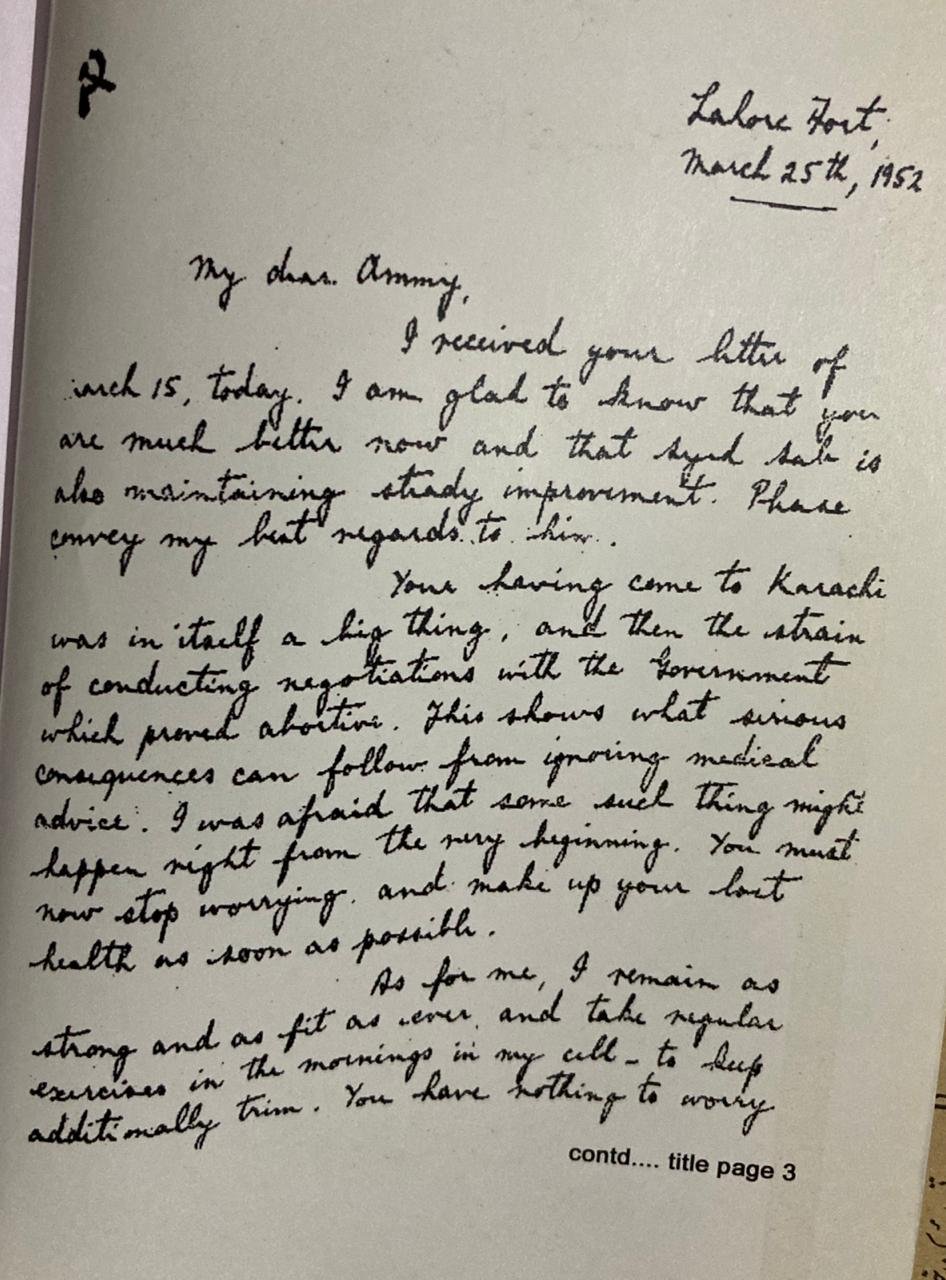 Lahore Fort,
March 25th, 1952
My dear Ammy,
I received your letter of
arch 15, today. I am glad to know that you
are much better now and that Syed Sab is
also maintaining steady improvement. Please
convey my best regards to him.
Your having come to Karachi
was in itself a big thing, and then the strain
of conducting negotiations with the Government
which proved abortive. This shows what serious
consequences can follow from ignoring medical
advice. I was afraid that some such thing might
happen right from the very beginning. You must
now stop worrying and make up your lost
health as soon as possible.
As for me, I remain as
strong and as fit as ever, and take regular
exercises in the mornings in my cell - to keep
additionally trim. You have nothing to worry
contd.... title page 3